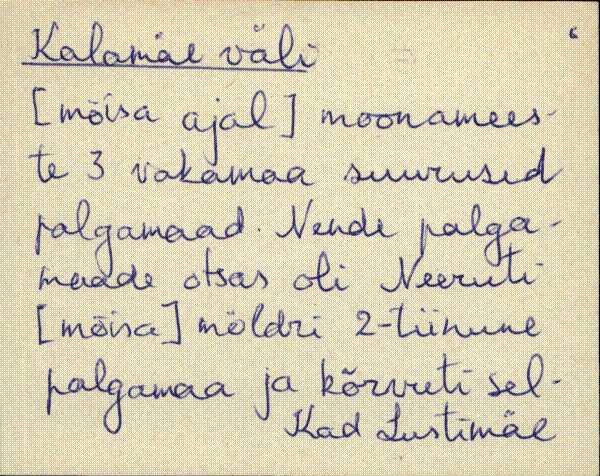 Kalamäe väli
[mõisa ajal] moonamees-
te 3 vakamaa suurused
palgamaad. Nende palga-
maade otsas oli Neeruti
[mõisa] möldri 2-tiinune
palgamaa ja kõrvuti sel-
Kad Lustimäe